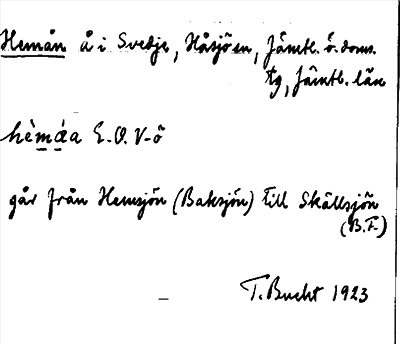 Hemån å i Svedje, Håsjö sn, Jämtl. ö. doms.
tg, Jämtl. län
hèmä́a E.O. V-ö
går från Hemsjön (Baksjön) till Skällsjön
(B.F.)
T. Bucht 1923